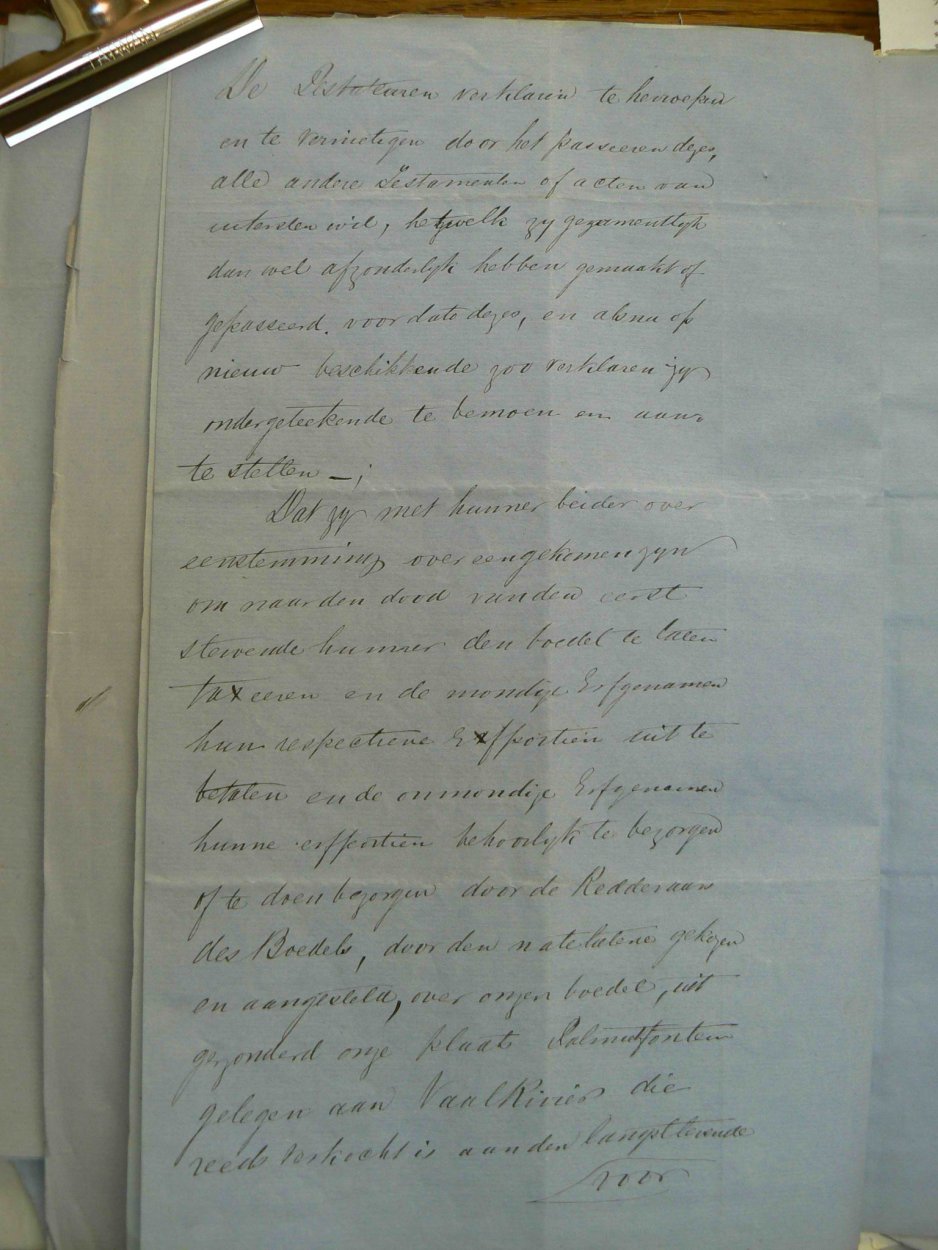 De Testateuren verklaren te herroepen
en te vernietigen door het passeeren dezes,
alle andere Testamenten of acten van
uitersten wil, hetwelk zy gezamentlyk
dan wel afzonderlyk hebben gemaakt of
gepasseerd. voor dato dezes, en alsnu op
nieuw beschikkende zoo verklaren zy
ondergeteekende te bemoen en aan
te stellen – ;
Dat zy met hunner beider over
eenstemming overeengekomen zyn
om naar den dood van den eerst
stervende hunner den boedel te laten
taxeeren en de mondige Erfgenamen
hun respectieve Erfportien uit te
betalen en de onmondige Erfgenamen
hunne erfportien behoorlyk te bezorgen
of te doen bezorgen door de Redderaars
des Boedels, door den natelatene gekozen
en aangesteld, over onzen boedel, uit
gezonderd onze plaats Palmietfontein
gelegen aan Vaal Rivier die
reeds verkocht is aan den langstlevende
voor